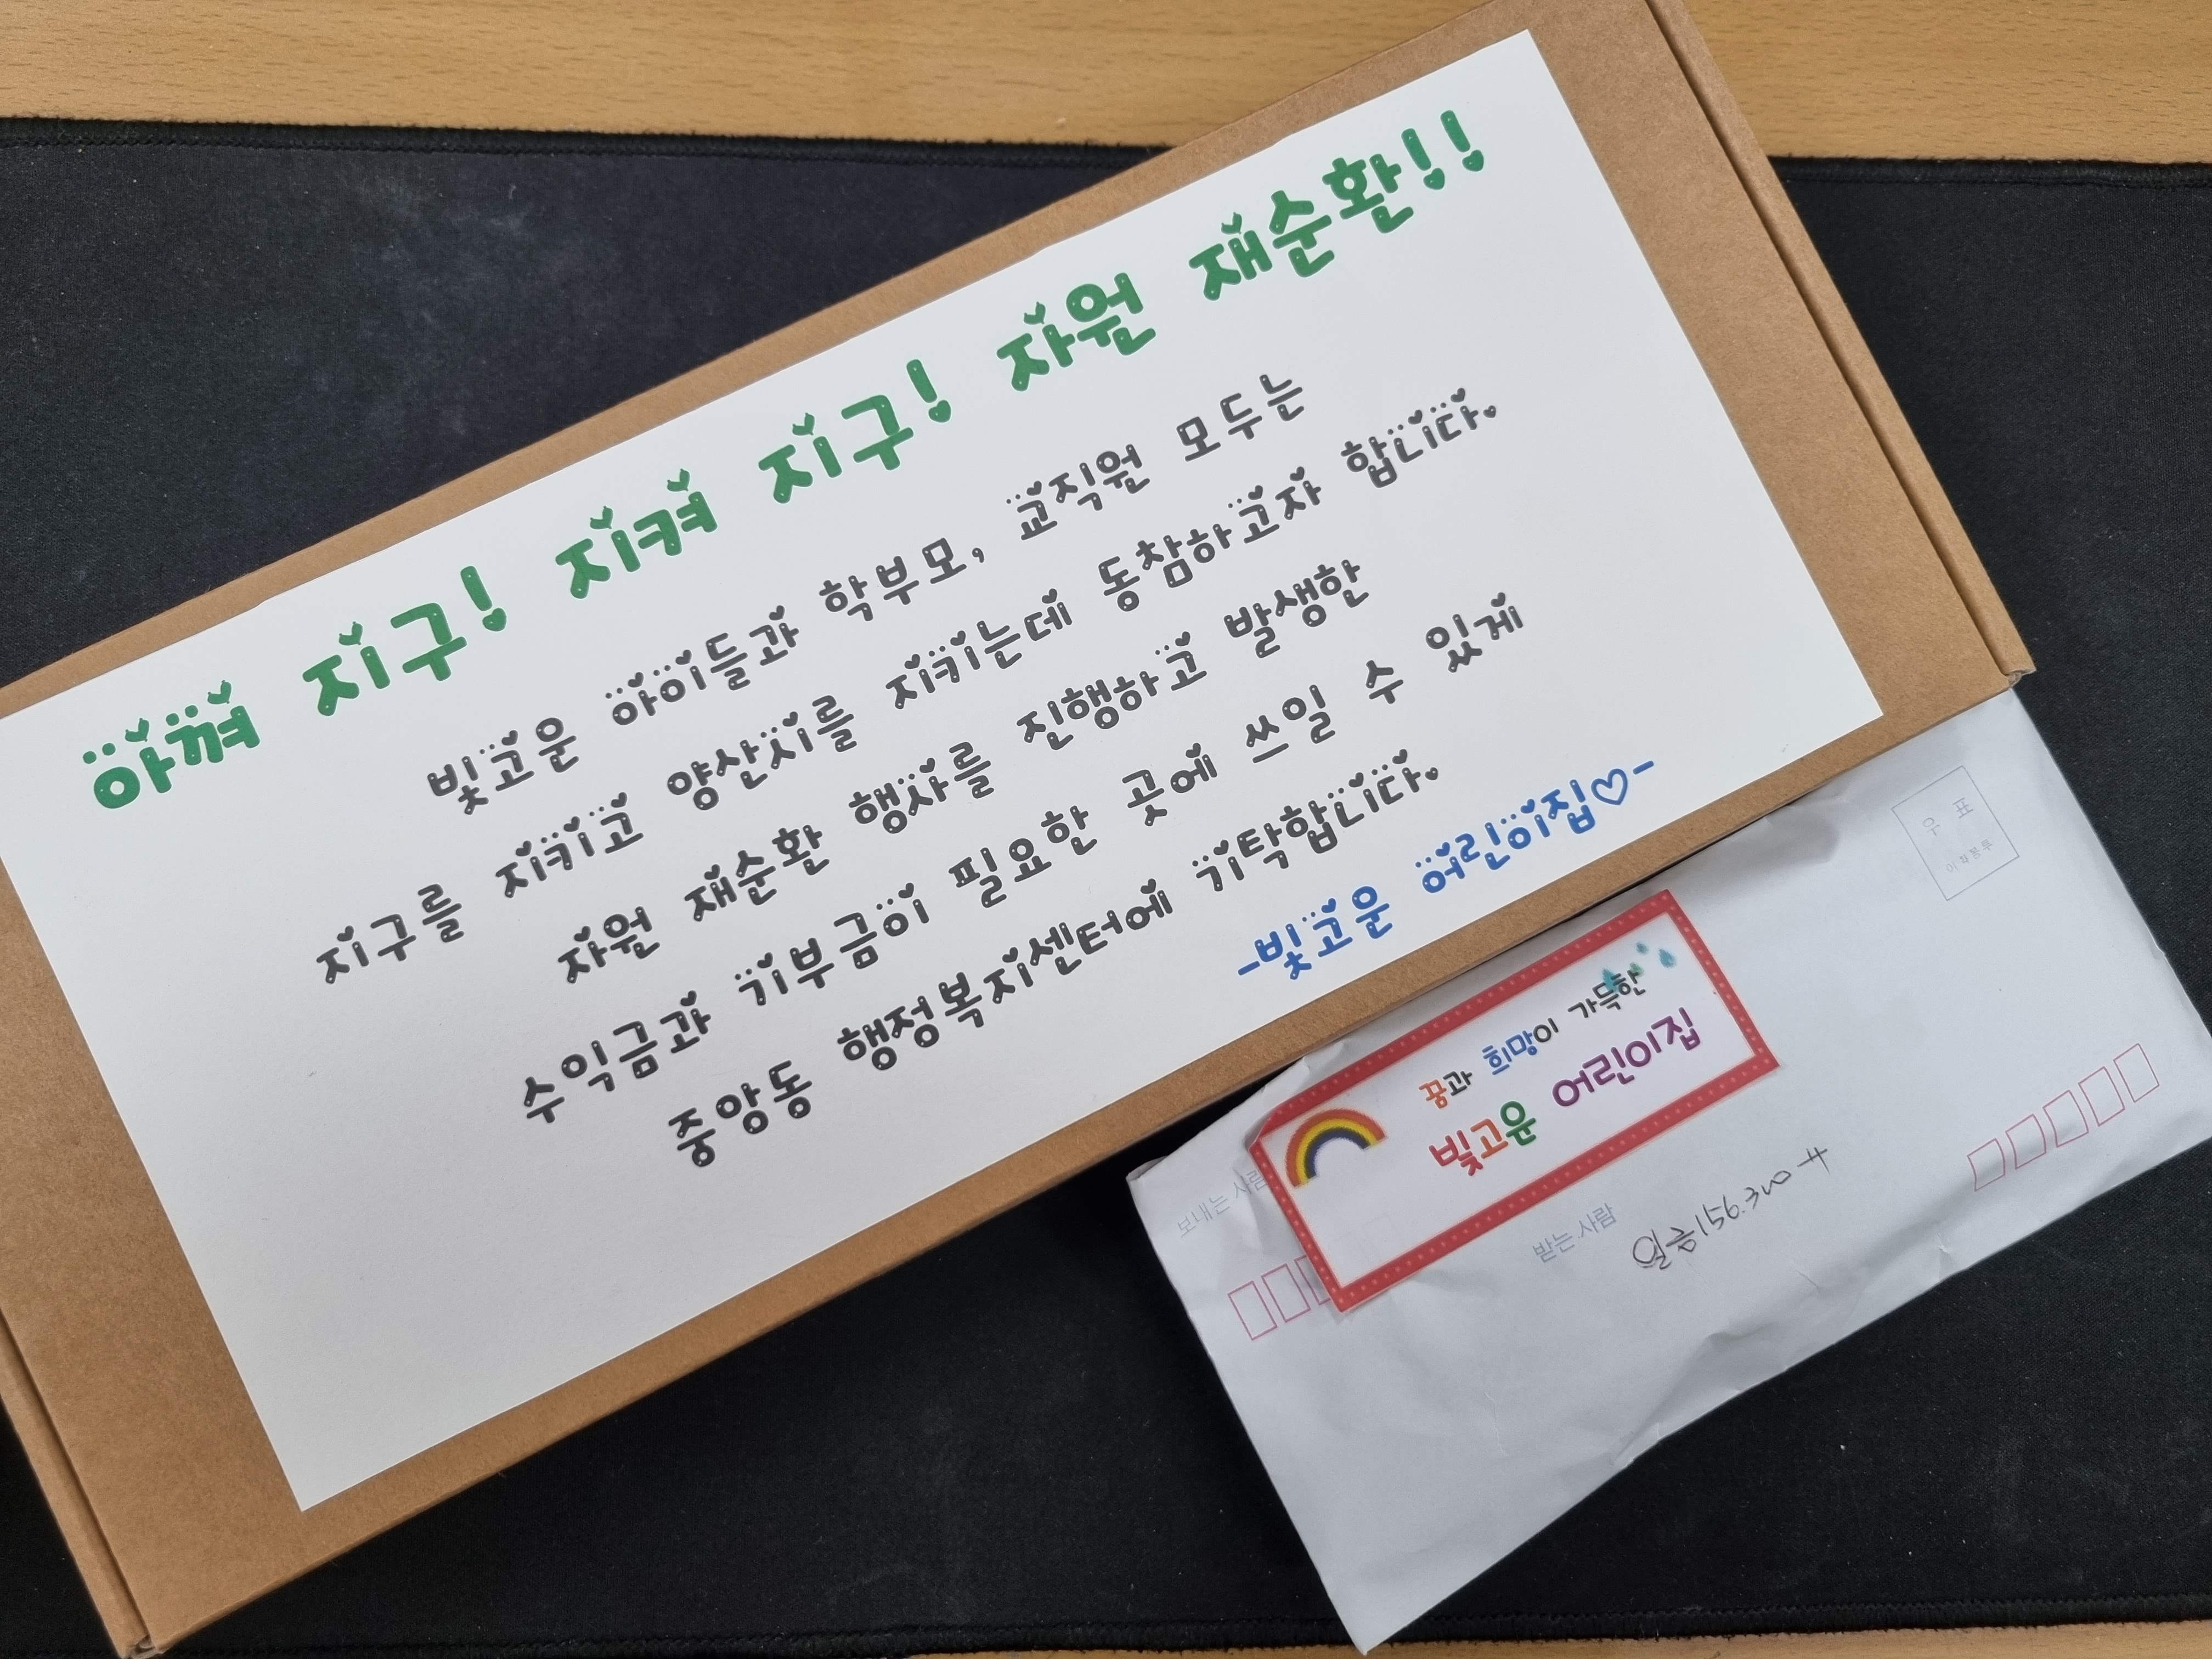 아껴 지구! 지켜 지구! 자원 재순환!!
빛고운 아이들과 학부모, 교직원 모두는
지구를 지키고 양산시를 지키는데 동참하고자 합니다.
자원 재순환 행사를 진행하고 발생한
수익금과 기부금이 필요한 곳에 쓰일 수 있게
중앙동 행정복지센터에 기탁합니다.
-빛고운 어린이집♡-
우 표
꿈과 희망이 가득한
빛고운 어린이집
보내는 사람
받는 사람
일금156.300